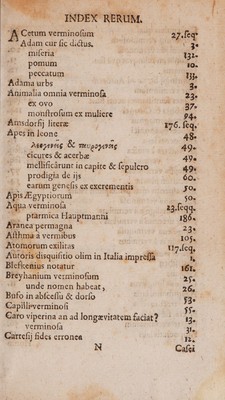 INDEX RERUM.
ACetum verminosum 27.seq.
Adam cur sic dictus. 3.
miseria 131.
pomum 10.
peccatum 133.
Adama urbs 3.
Animalia omnia verminosa 23.
ex ovo 37.
monstrosum ex muliere 94.
Amsdorfii literæ 176. seq.
Apes in leone 48.
λεογενεῖς & ταυρογενεῖς 49.
cicures & acerbæ 49.
mellificârunt in capite & sepulcro 49.
prodigia de ijs 60.
earum genesis ex excrementis 50.
Apis Ægyptiorum 50.
Aqua verminosa 23.seqq.
ptarmica Hauptmanni 186.
Aranea permagna 23.
Asthma à vermibus 105.
Atomorum exilitas 117.seq.
Autoris disquisitio olim in Italia impressa 1.
Blefkenius notatur 161.
Breyhanium verminosum 25.
unde nomen habeat, 26.
Bufo in abscessu & dorso 53.
Capilli verminosi 55.
Caro viperina an ad longævitatem faciat? 13.
verminosa 31.
Cartesij fides erronea 12.
N Casei